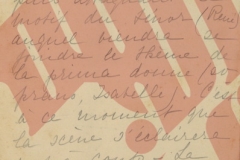 motif du Ténor (René)
auquel viendra se
fondre le thème de
la prima donna (so
prano, Isabelle) C'est
à ce moment que
la scène s'éclairera
Le